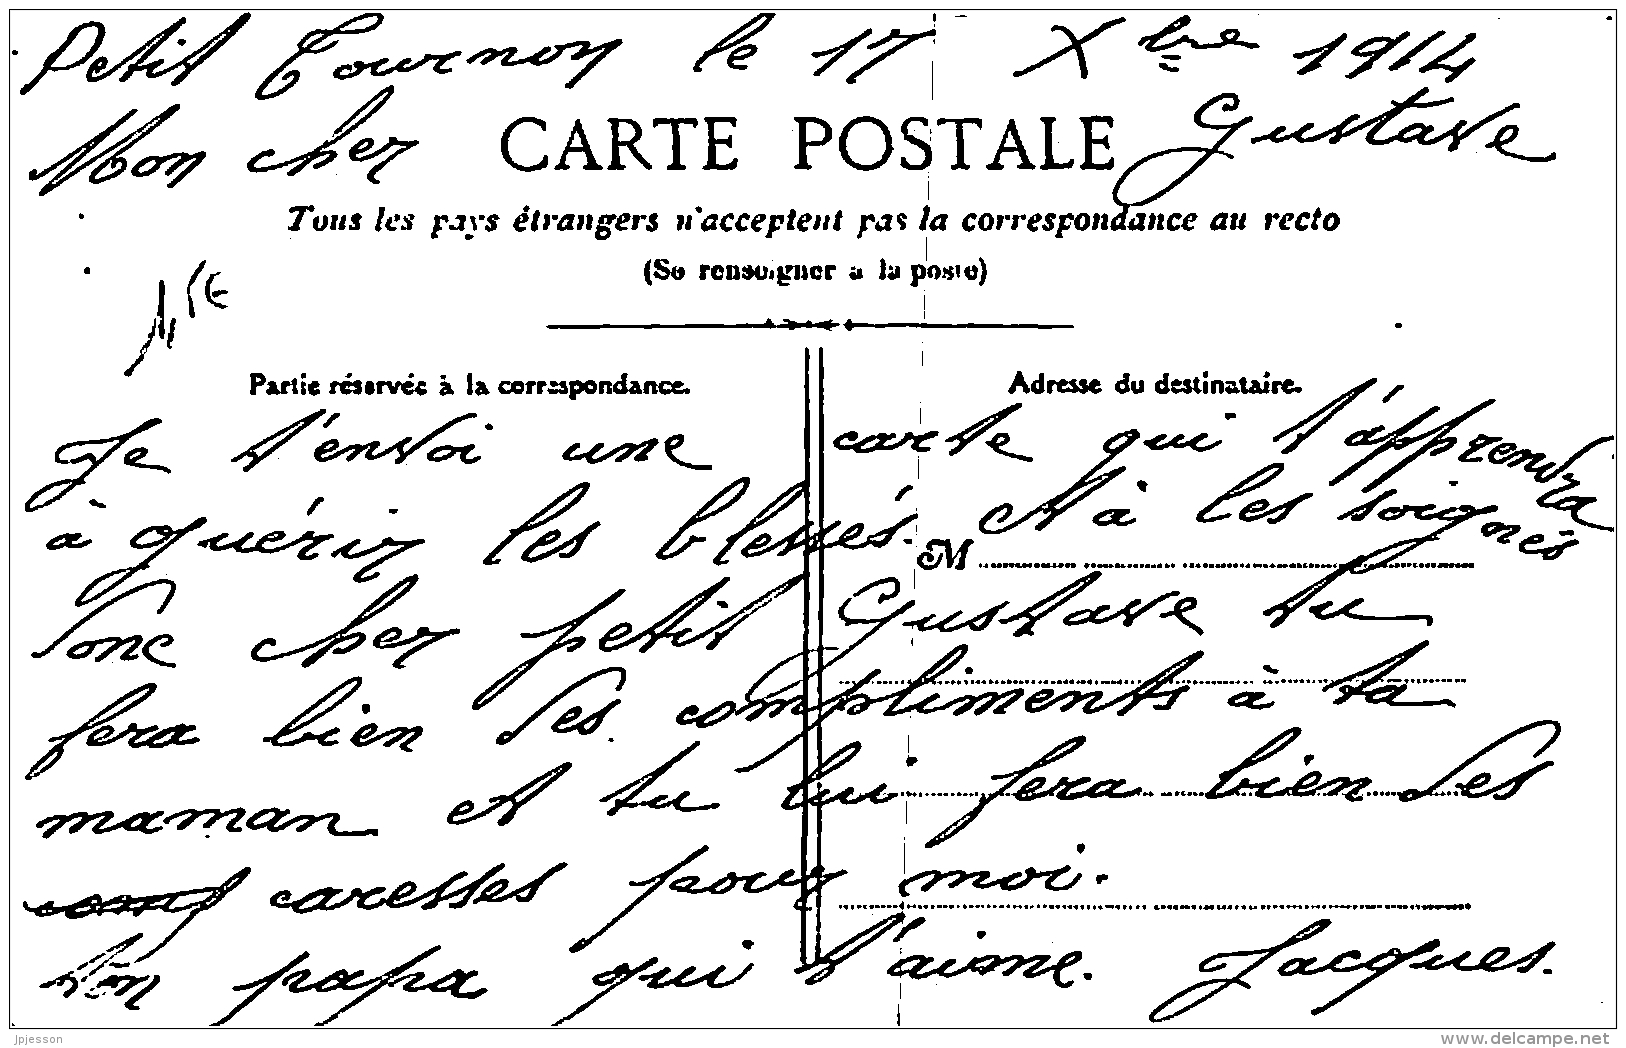 Petit Tournoy le 17 Xbre 1914
Mon cher Gustave
CARTE POSTALE
Tous les pays étrangers n'acceptent pas la correspondance au recto
(Se renseigner à la poste)
Partie réservée à la correspondance.
Adresse du destinataire.
Je t'envoi une carte qui t'apprendra
à guérir les blessés. Et à les soignés
M
donc cher petit Gustave tu
fera bien des compliments à ta
maman et tu lui fera bien des
caresses pour moi.
ton papa qui t'aime. Jacques.
Jpjesson
www.delcampe.net